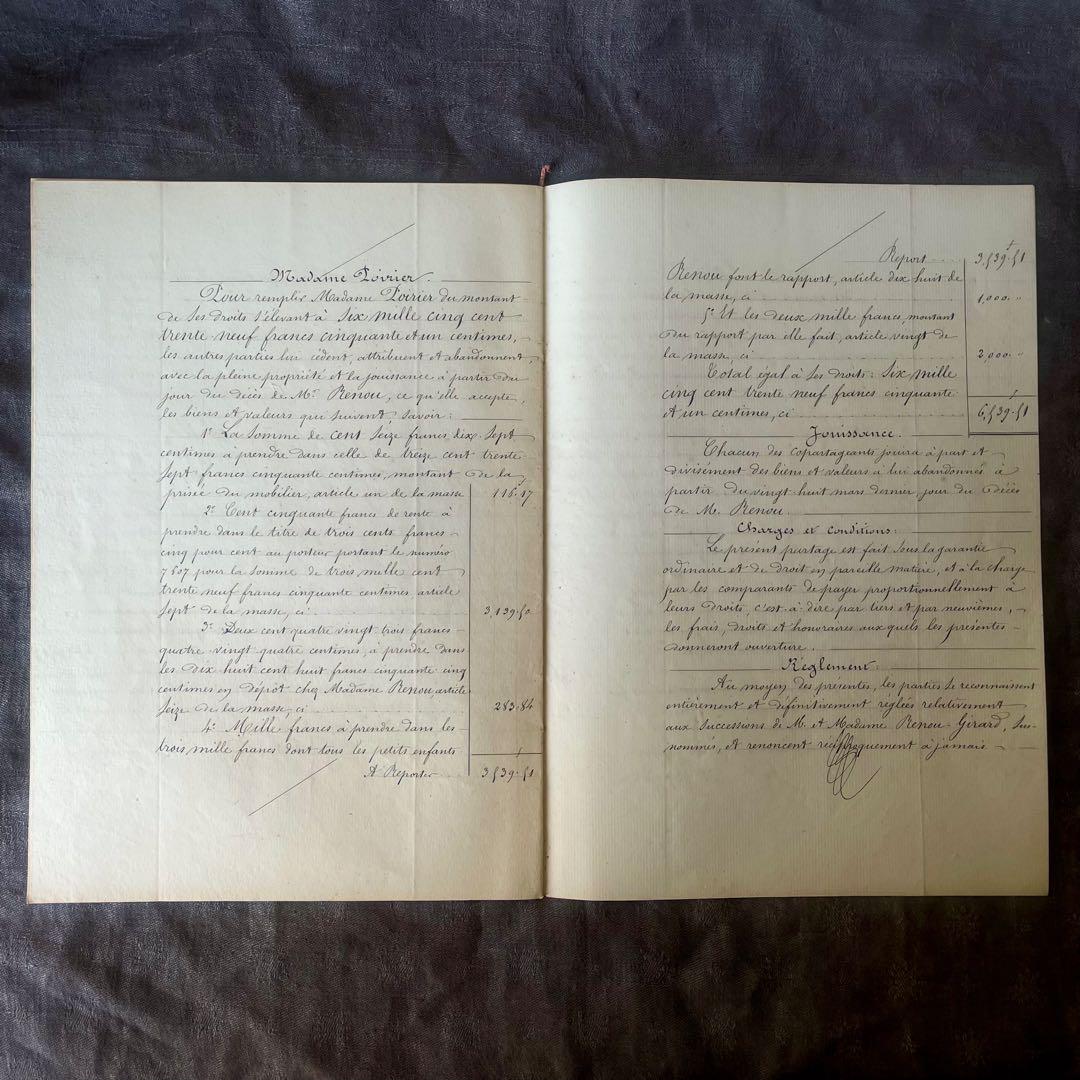 Madame Poirier.
Pour remplir Madame Poirier du montant
de ses droits s'élevant à six mille cinq cent
trente neuf francs cinquante et un centimes,
les autres parties lui cèdent, attribuent et abandonnent,
avec la pleine propriété et la jouissance à partir du
jour du décès de Mr Renou, ce qu'elle accepte,
les biens et valeurs que suivent, savoir:
1° La somme de cent seize francs dix-sept
centimes à prendre dans celle de treize cent trente
sept francs cinquante centimes, montant de la
prisée du mobilier, article un de la masse 116.17
2° Cent cinquante francs de rente à
prendre dans le titre de trois cents francs
cinq pour cent au porteur portant le numéro
7507 pour la somme de trois mille cent
trente neuf francs cinquante centimes article
sept de la masse, ci 3,139.50
3° Deux cent quatre vingt trois francs
quatre vingt quatre centimes, à prendre dans
les dix huit cent huit francs cinquante cinq
centimes en dépôt chez Madame Renou article
seize de la masse, ci 283.84
4° Mille francs à prendre dans les
trois mille francs dont tous les petits enfants
A Reporter 3539.51
Report 3,539.51
Renou font le rapport, article dix huit de
la masse, ci 1,000 "
5° Et les deux mille francs, montant
du rapport par elle fait, article vingt de
la masse, ci 2,000 "
Total égal à ses droits: six mille
cinq cent trente neuf francs cinquante
et un centimes, ci 6,539.51
Jouissance.
Chacun des copartageants jouira à part et
divisément des biens et valeurs à lui abandonnés à
partir du vingt huit mars dernier jour du décès
de M. Renou.
Charges et conditions:
Le présent partage est fait sous la garantie
ordinaire et de droit en pareille matière, et à la charge
par les comparants de payer proportionnellement à
leurs droits, c'est-à-dire par tiers et par neuvièmes,
les frais, droits et honoraires auxquels les présentes
donneront ouverture.
Règlement
Au moyen des présentes, les parties se reconnaissent
entièrement et définitivement réglées relativement
aux successions de M. et Madame Renou-Girard, sus-
nommés, et renoncent réciproquement à jamais